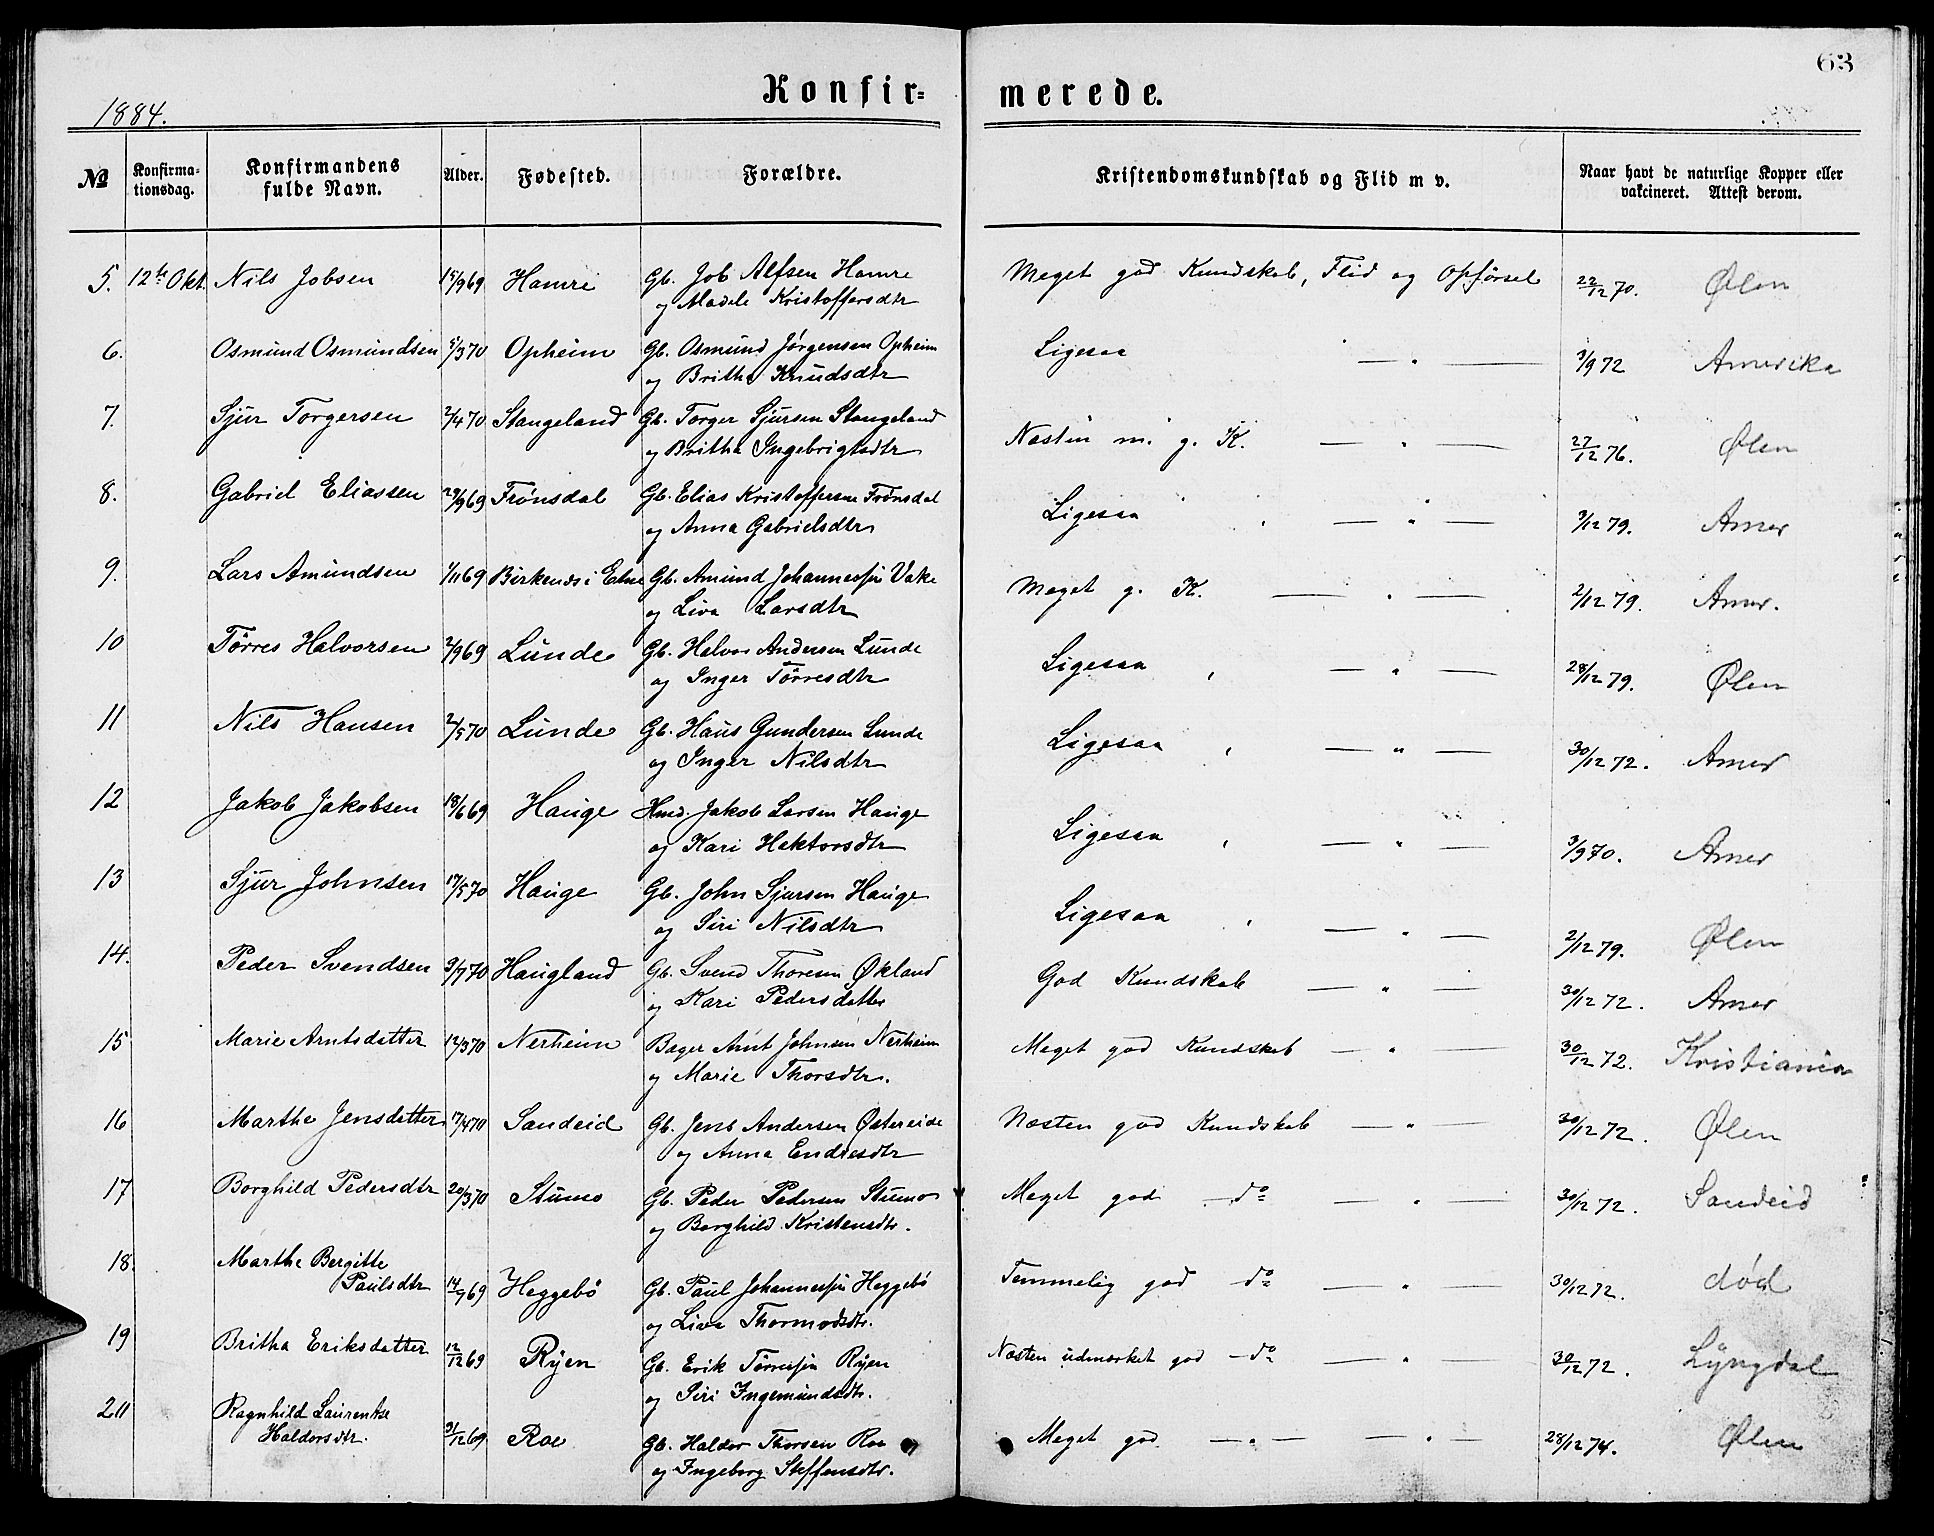 63
1884.
Konfir= merede.
№ Konfirma-tionsdag. Konfirmandens fulde Navn. Alder. Fødested. Forældre. Kristendomskundskab og Flid m v. Naar havt de naturlige Kopper eller vakcineret. Attest derom.
5. 12te Okt. Nils Jobsen 15/9 69 Hamre Gb. Job Alfsen Hamre Meget god Kundskab, Flid og Opførsel 22/12 70. Ølen
og Madele Kristoffersdtr
6. Osmund Osmundsen 5/3 70 Opheim Gb. Osmund Jørgensen Opheim Ligesaa — " — 3/9 72 Amerika
og Britha Knudsdtr
7. Sjur Torgersen 2/4 70 Stangeland Gb. Torger Sjursen Stangeland Næsten m. g. K. — " — 27/12 76. Ølen
og Britha Ingebrigtsdtr
8. Gabriel Eliassen 29/9 69 Frønsdal Gb. Elias Kristoffersen Frønsdal Ligesaa — " — 3/12 79. Amer
og Anna Gabrielsdtr
9. Lars Amundsen 1/11 69 Birkenes i Etne Gb. Amund Johannessen Vake Meget g. K. — " — 2/12 79. Amer.
og Liva Larsdtr
10 Tørres Halvorsen 2/9 69 Lunde Gb. Halvor Andersen Lunde Ligesaa — " — 28/12 79. Ølen
og Inger Tørresdtr
11 Nils Hansen 2/5 70 Lunde Gb. Hans Gundersen Lunde Ligesaa — " — 30/12 72. Amer
og Inger Nilsdtr
12 Jakob Jakobsen 18/6 69 Hauge Hmd. Jakob Larsen Hauge Ligesaa — " — 3/9 70. Amer
og Kari Hektorsdtr
13 Sjur Johnsen 17/5 70 Hauge Gb. John Sjursen Hauge Ligesaa — " — 2/12 79. Ølen
og Siri Nilsdtr
14. Peder Svendsen 3/7 70 Haugland Gb. Svend Thoresen Økland God Kundskab — " — 30/12 72. Amer
og Kari Pedersdatter
15 Marie Arntsdatter 12/3 70 Nerheim Bager Arnt Johnsen Nerheim Meget god Kundskab — " — 30/12 72. Kristiania
og Marie Thorsdtr.
16 Marthe Jensdatter 17/4 70 Sandeid Gb. Jens Andersen Østereide Næsten god Kundskab — " — 30/12 72. Ølen
og Anna Endresdtr
17 Borghild Pedersdtr 20/3 70 Stumo Gb. Peder Pedersen Stumo Meget god do — " — 30/12 72. Sandeid
og Borghild Kristensdtr.
18. Marthe Bergitte
Paulsdtr 14/9 69 Heggebø Gb. Paul Johannessen Heggebø Temmelig god do — " — 30/12 72. død
og Liva Thormodsdtr.
19 Britha Eriksdatter 12/12 69 Ryen Gb. Erik Tørressen Ryen Næsten udmærket god do — " — 30/12 72. Lyngdal
og Siri Ingemundsdtr.
20 Ragnhild Laurentse
Haldorsdtr. 31/12 69 Roe Gb. Haldor Thorsen Roe Meget god — " — — " — 28/12 74. Ølen
og Ingeborg Steffensdtr.